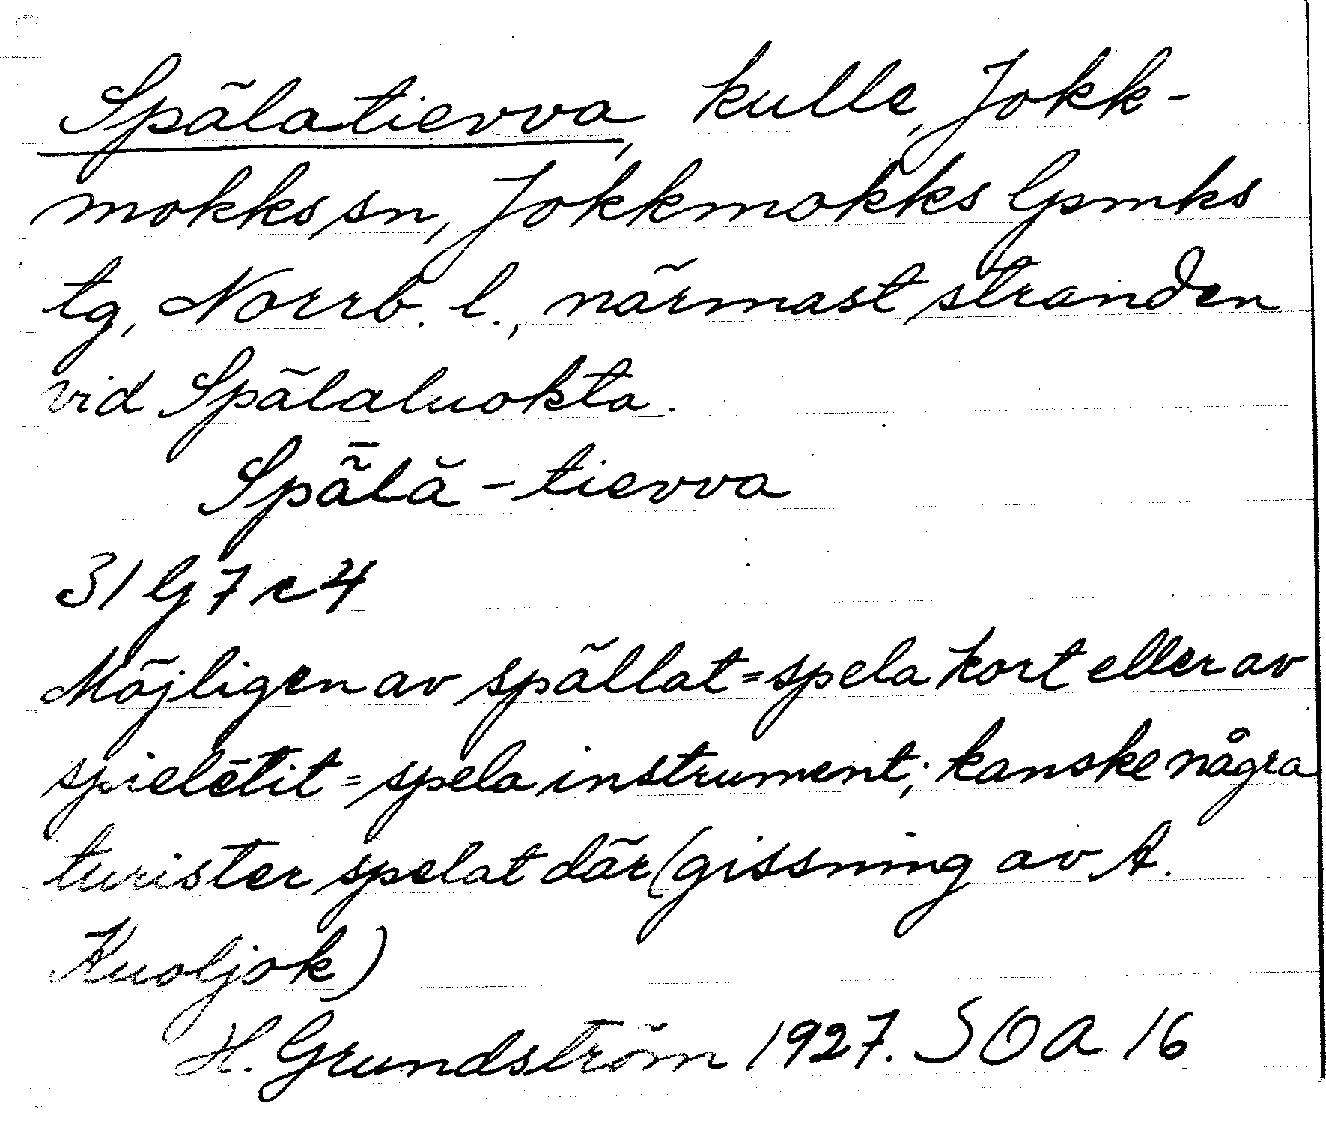 Spälatievva, kulle, Jokk-
mokks sn, Jokkmokks lpmks
tg, Norrb. l., närmast stranden
vid Spälaluokta.
Spǟlă - tievva
31 G 7 c 4
Möjligen av spällat = spela kort eller av
spielētit = spela instrument; kanske några
turister spelat där (gissning av A.
Kuoljok)
H. Grundström 1927. SOA 16